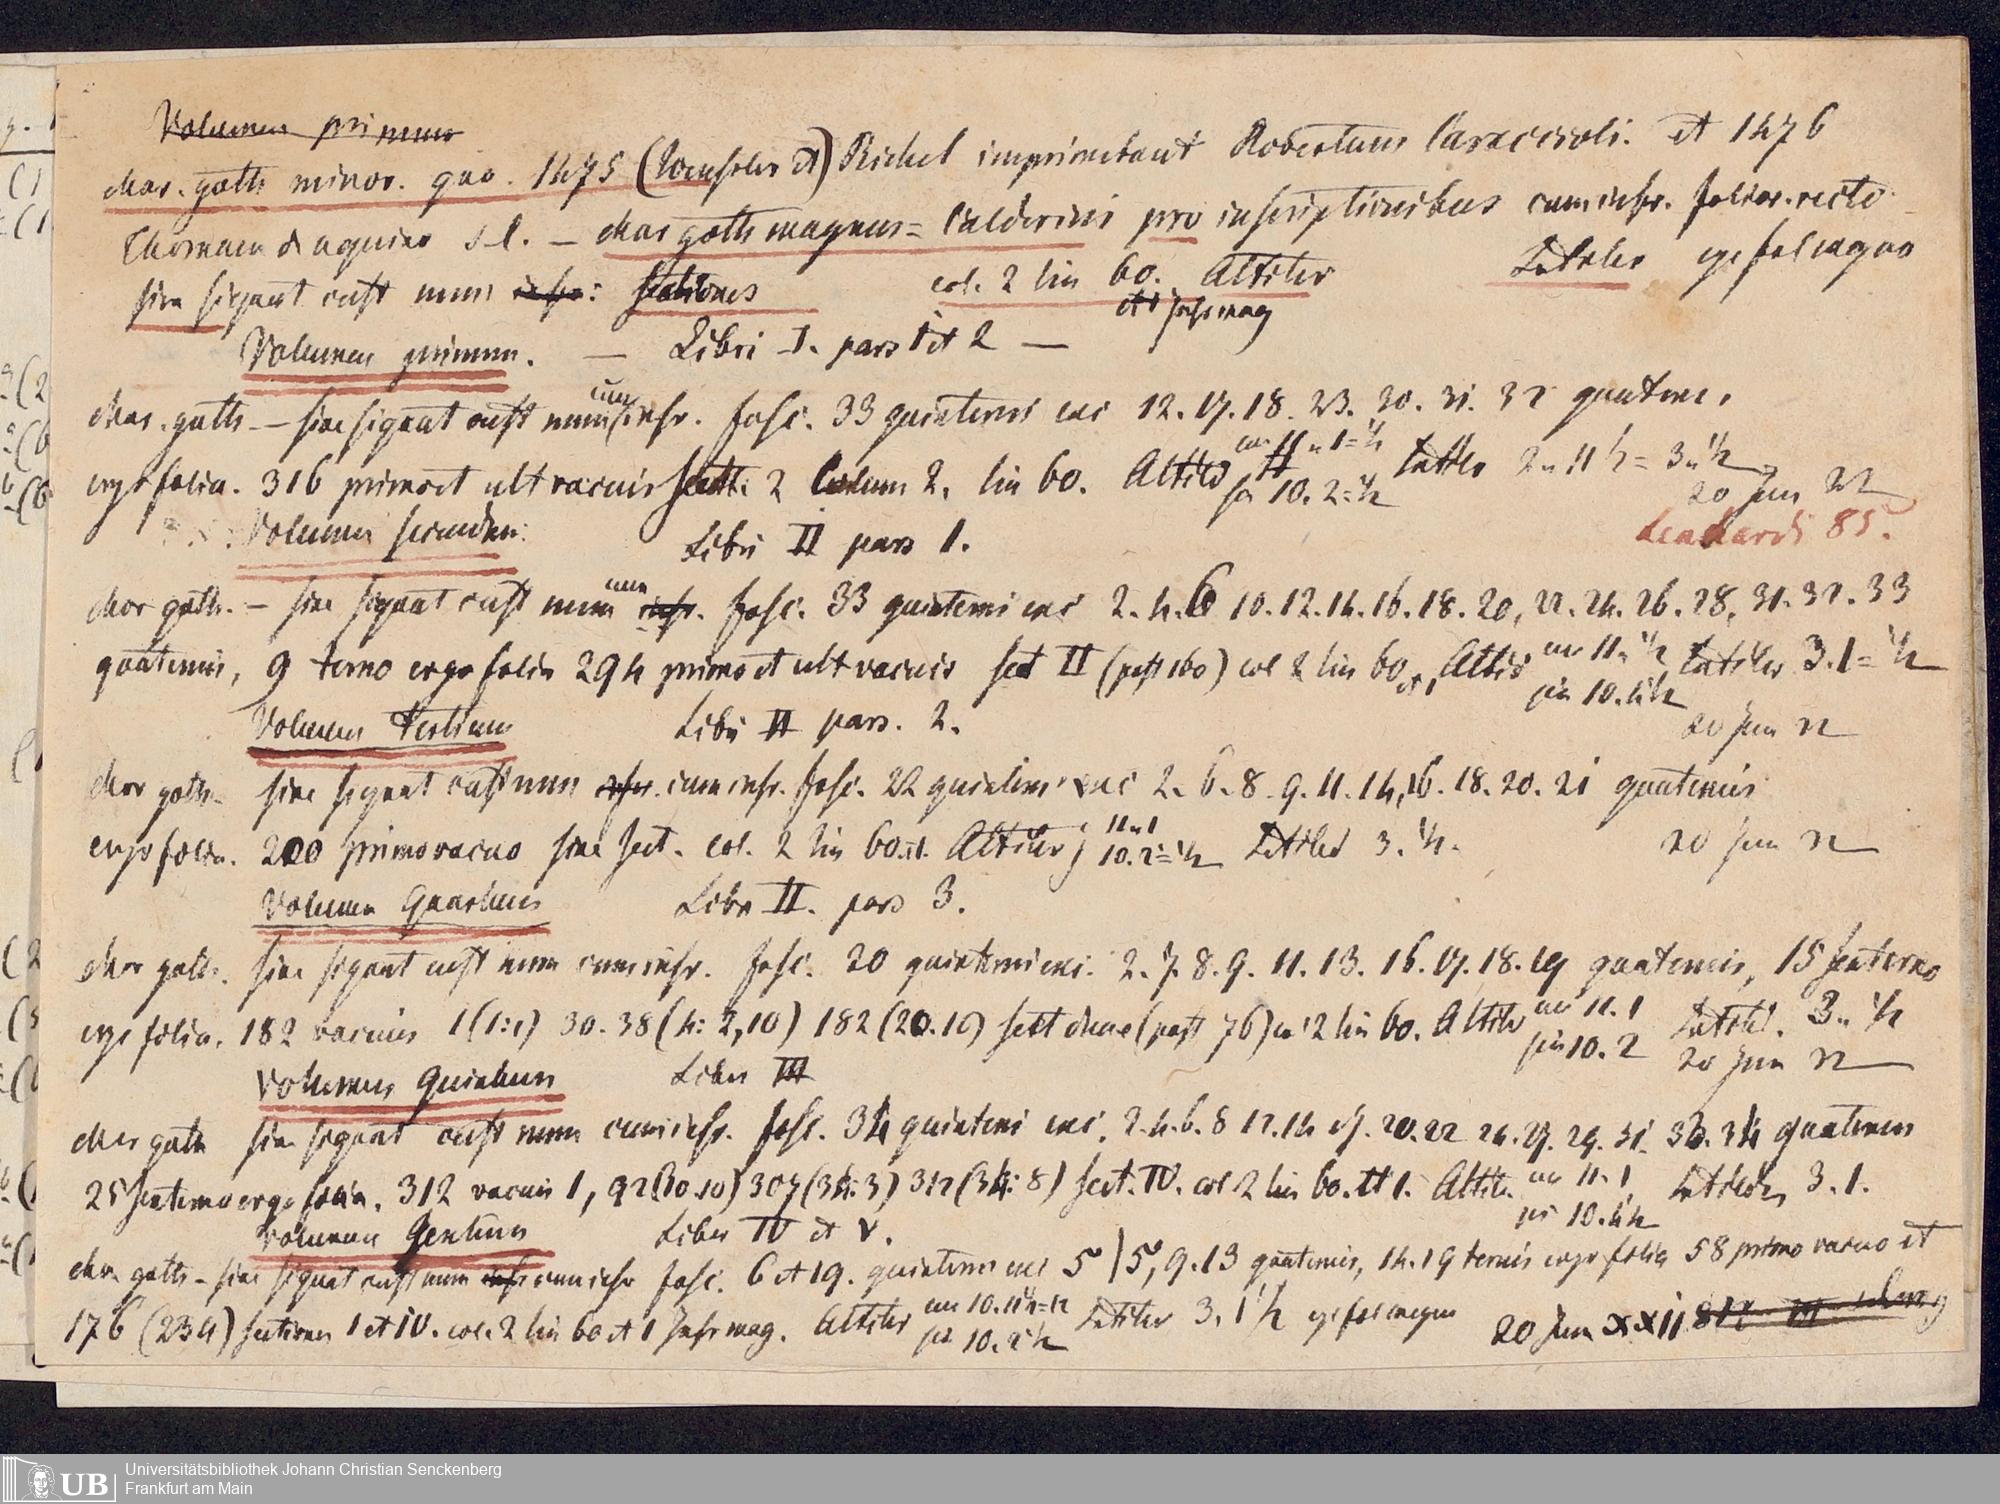 Volumen primum
char. goth minor. quo. 1475 (Wenssler et) Richel imprimebant Robertum Caraccioli. et 1476
Thomam de aquino s. l. — char goth magnus = Calderini pro inscriptionibus cum infr. folior. recto
sine signant cust num infr: sectiones col. 2 lin 60. Altitler Latitler ex fol magno
et 1 sup mag
Volumen primum. — Libri I. pars 1 et 2 —
char. goth — sine signat cust num cum infr. fasc. 33 quinterni exc 12. 17. 18. 23. 30. 31. 32 quatern.
ergo folia. 316 primo et ult vacuis sect. 2 Colum 2. lin 60. Altitler cum 11 " 1 = ½ Latitler 2 " 11 ½ = 3 " ½
sin 10. 2 = ½ 20 Jun 22
Lenhardi 85.
Volumen secundum: Libri II pars 1.
char goth. — sine signat cust num cum infr. fasc. 33 quinterni exc 2. 4. 6 10. 12. 14. 16. 18. 20. 22. 24. 26. 28. 31. 32. 33
quaternis, 9 terno ergo folia 294 primo et ult vacuis sect II (post 160) col 2 lin 60 Altitler cum 11 " ½ Latitler 3. 1 = ½
sin 10. 4 ½ 20 Jun 22
Volumen tertium Libri II pars. 2.
char goth — sine signat cust num infr. cum infr. fasc. 22 quinterni exc 2. 6. 8. 9. 11. 14. 16. 18. 20. 21 quaternis
ergo folia. 200 primo vacuo sine sect. col. 2 lin 60 Altitler 11 " 1
10. 2 = ½ Latitler 3. ½. 20 Jun 22
Volumen Quartum Libri II. pars 3.
char goth. sine signat cust num cum infr. fasc. 20 quinterni exc. 2. 7. 8. 9. 11. 13. 16. 17. 18. 19 quaternis, 15 senterno
ergo folia. 182 vacuis 1 (1:1) 30. 38 (4: 2,10) 182 (20.10) sect duae (post 76) col 2 lin 60. Altitler cum 11. 1 Latitler. 3 " ½
sin 10. 2 20 Jun 22
Volumen Quintum Liber III
char goth sine signat cust num cum infr. fasc. 34 quinterni exc. 2. 4. 6. 8 12. 14 17. 20. 22 24. 27. 29. 31. 33. 34 quaternis
25 senterno ergo folia. 312 vacuis 1, 92 (10.10) 307 (34: 3) 312 (34: 8) sect. IV. col 2 lin 60. et 1. Altitler cum 11. 1 Latitler 3. 1.
sin 10. 4 ½
Volumen Sextum Liber IV et V.
char goth — sine signat cust num infr cum infr fasc. 6 et 19. quinterni exc 5 | 5, 9. 13 quaternis, 14. 19 ternis ergo folia 58 primo vacuo et
176 (234) sectiones I et IV. col. 2 lin 60 et 1 sup mag. Altitler cum 10. 11 ½ = 12 Latitler 3. 1 ½ ex fol magno 20 Jun xxii
sin 10. 2 ½
UB Universitätsbibliothek Johann Christian Senckenberg
Frankfurt am Main